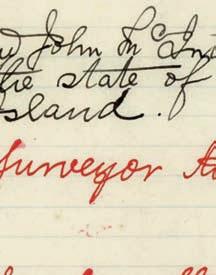 John McInt
the state of
Island.
Surveyor